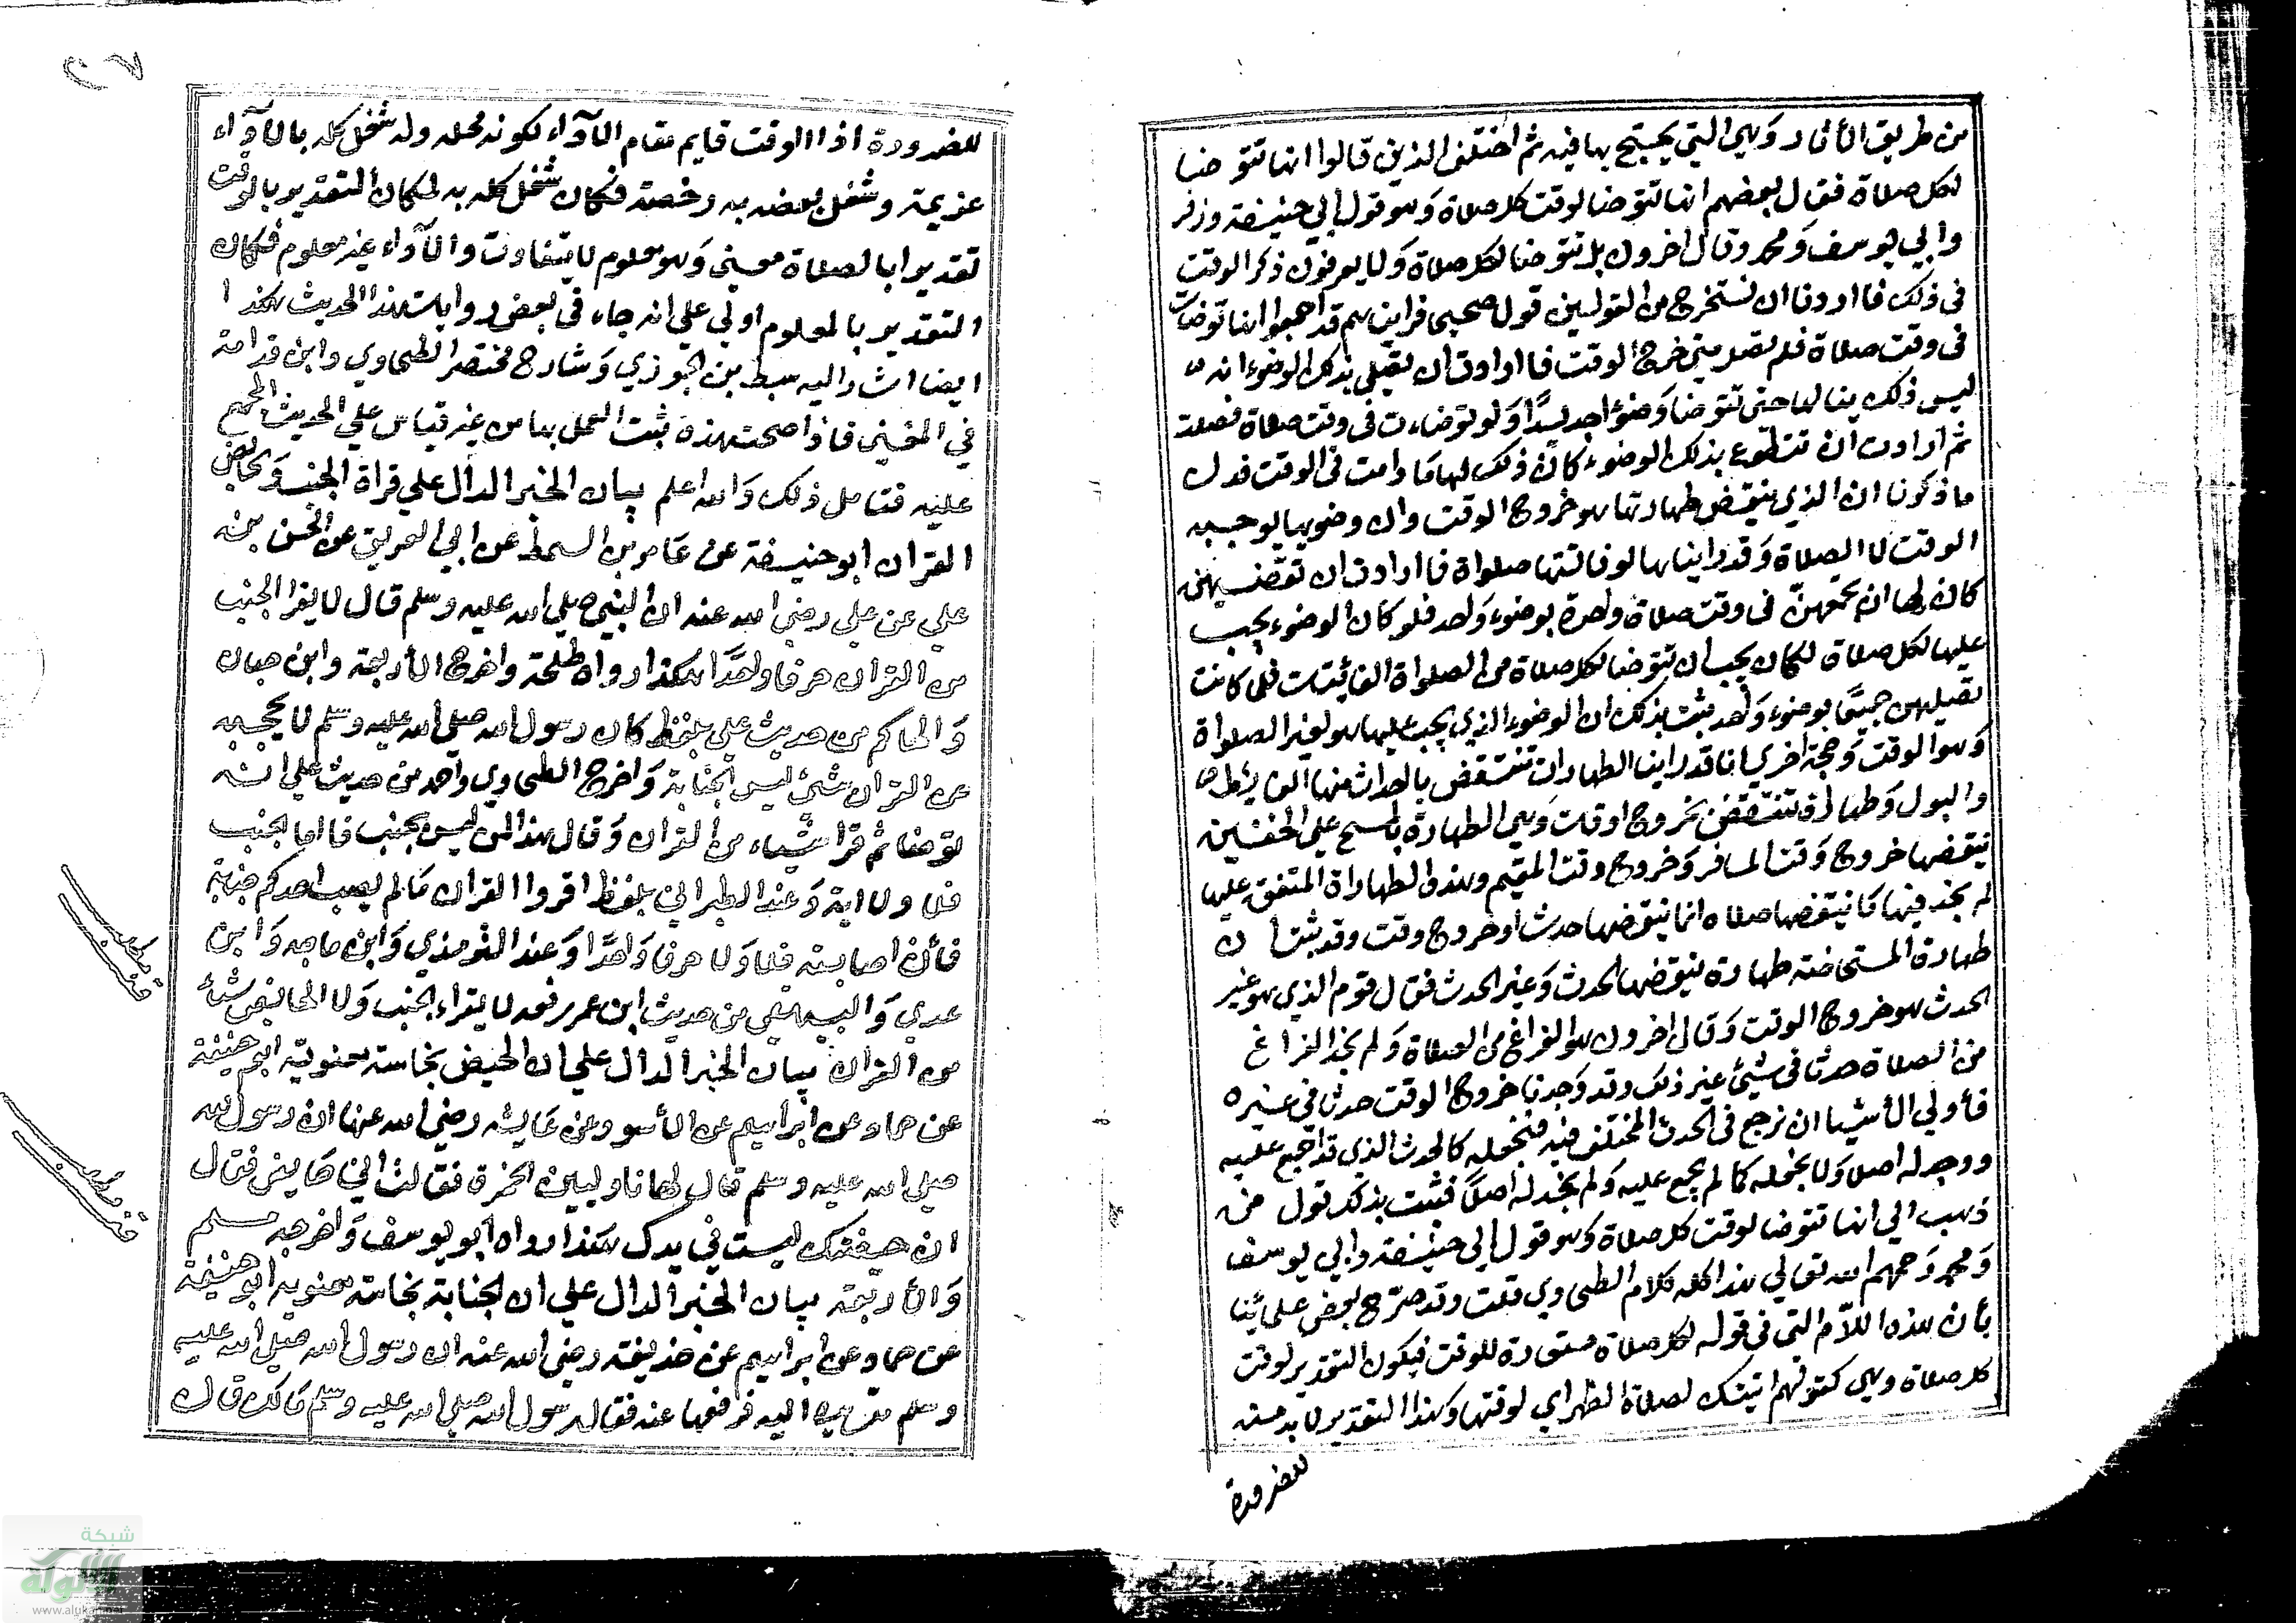 من طريق الأثار وهي التي يحتج بها فيه ثم اختلف الذين قالوا انها تتوضا
لكل صلاة فقال بعضهم انها تتوضا لوقت كل صلاة وهو قول ابي حنيفة وزفر
وابي يوسف ومحمد وقال اخرون بل تتوضا لكل صلاة ولا يعرفون ذكر الوقت
في ذلك فاردنا ان نستخرج من القولين قولا صحيحا فراينهم قد اجمعوا انها توضات
في وقت صلاة فلم تصل حتى خرج الوقت فارادت ان تصلي بذلك الوضوء انه
ليس ذلك بنا لها حتى تتوضا وضوءا جديدًا ولو توضاءت في وقت صلاة فصلت
ثم ارادت ان تتطوع بذلك الوضوء كان ذلك لها ما دامت في الوقت فدل
ما ذكرنا ان الذي ينقض طهارتها هو خروج الوقت وان وضوءها يوجبه
الوقت لا الصلاة وقد راينا ها لو فاتتها صلواة فارادت ان تقضيهن
كان لها ان تجمعهنّ في وقت صلاة واحدة بوضوء واحد فلو كان الوضوء يجب
عليها لكل صلاة لكان يجب ان تتوضا لكل صلاة من الصلواة الفائتات فلما كانت
تصليهن جميعًا بوضوء واحد ثبت بذلك ان الوضوء الذي يجب عليها هو لغير الصلواة
وهو الوقت وحجة اخري انا قد راينا الطهارات تنتقض باحداث منها الغايط
والبول وطهارات تنتقض بخروج اوقات وهي الطهارة بالمسح علي الخفين
ينقضها خروج وقت المسافر وخروج وقت المقيم وهذه الطهاراة المتفق عليها
لم نجد فيها ما ينقضها صلاه انما ينقضها حدث او خروج وقت وقد ثبت ان
طهارة المستحاضة طهارة ينقضها الحدث وغير الحدث فقال قوم الذي هو غير
الحدث هو خروج الوقت وقال اخرون هو الفراغ من الصلاة ولم نجد الفراغ
من الصلاة حدثا في شيئ غير ذلك وقد وجدنا خروج الوقت حدثا في غيره
فأولي الأشيا ان نرجع في الحدث المختلف فيه فنجعله كالحدث الذي قد اجمع عليه
ووجد له اصل ولا نجعله كما لم يجمع عليه ولم نجد له اصلًا فثبت بذلك قول من
ذهب الي انها تتوضا لوقت كل صلاة وهو قول ابي حنيفة وابي يوسف
ومحمد رحمهم الله تعالي هذا كله كلام الطحاوي قلت وقد صرّح بعض علمائنا
بأن هذه اللآم التي في قوله لكل صلاة مستعارة للوقت فيكون التقدير لوقت
كل صلاة وهي كقولهم اتيتك لصلاة الظهر اي لوقتها وهذا التقدير لا بد منه
للضرورة
للضرورة اذا الوقت قايم مقام الآداء لكونه محله وله شغل كله بالآداء
عزيمة وشغل بعضه به رخصة فكان شغل كله به لكان التقدير بالوقت
تقديرا بالصلاة معنى وهو معلوم لا يتفاوت والآداء غير معلوم فكان
التقدير بالمعلوم اولي علي انه جاء في بعض روايات هذا الحديث هكذا
ايضا اشار اليه سبط بن الجوزي وشارح مختصر الطحاوي وابن قدامة
في المغني فاذا صحت هذه ثبت العمل بها من غير قياس علي الحديث المجمع
عليه فتامل ذلك والله اعلم بيان الخبر الدال علي قراة الجنب والحايض
القران ابو حنيفة عن عامر بن السمط عن ابي العريف عن الحسن بن
علي عن علي رضي الله عنه ان النبي صلي الله عليه وسلم قال لا يقرا الجنب
من القران حرفا واحدًا هكذا رواه طلحة واخرج الأربعة وابن حبان
والحاكم من حديث علي بلفظ كان رسول الله صلي الله عليه وسلم لا يحجبه
عن القران شيئ ليس الجنابة واخرج الطحاوي واحمد من حديث علي انه
توضا ثم قرا شيأ من القران وقال هذا لمن ليس بجنب فاما الجنب
فلا ولا اية وعند الطبراني بلفظ اقروا القران ما لم يصب احدكم جنابة
فأن اصابته فلا ولا حرفا واحدًا وعند الترمذي وابن ماجه وابن
عدي والبيهقي من حديث ابن عمر رفعه لا يقراء الجنب ولا الحائض شيأ
من القران بيان الخبر الدال علي ان الحيض نجاسة معنوية ابو حنيفة
عن حماد عن ابراهيم عن الأسود عن عايشه رضي الله عنها ان رسول الله
صلي الله عليه وسلم قال لها ناوليني الخمرة فقالت اني حايض فقال
ان حيضتك ليست في يدك هكذا رواه ابو يوسف واخرجه مسلم
والأربعة بيان الخبر الدال علي ان الجنابة نجاسة معنوية ابو حنيفة
عن حماد عن ابراهيم عن حذيفة رضي الله عنه ان رسول الله صلي الله عليه
وسلم مد يده اليه فرفعها عنه فقال رسول الله صلي الله عليه وسلم مالك قال
شبكة
الألوكة